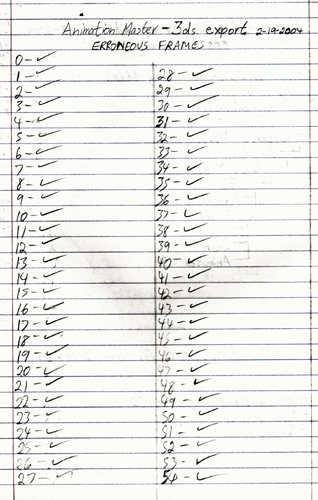 Animation Master - 3ds export 2-19-2004
ERRONEOUS FRAMES???
0-✓
1-✓
2-✓
3-✓
4-✓
5-✓
6-✓
7-✓
8-✓
9-✓
10-✓
11-✓
12-✓
13-✓
14-✓
15-✓
16-✓
17-✓
18-✓
19-✓
20-✓
21-✓
22-✓
23-✓
24-✓
25-✓
26-✓
27-✓
28-✓
29-✓
30-✓
31-✓
32-✓
33-✓
34-✓
35-✓
36-✓
37-✓
38-✓
39-✓
40-✓
41-✓
42-✓
43-✓
44-✓
45-✓
46-✓
47-✓
48-✓
49-✓
50-✓
51-✓
52-✓
53-✓
54-✓